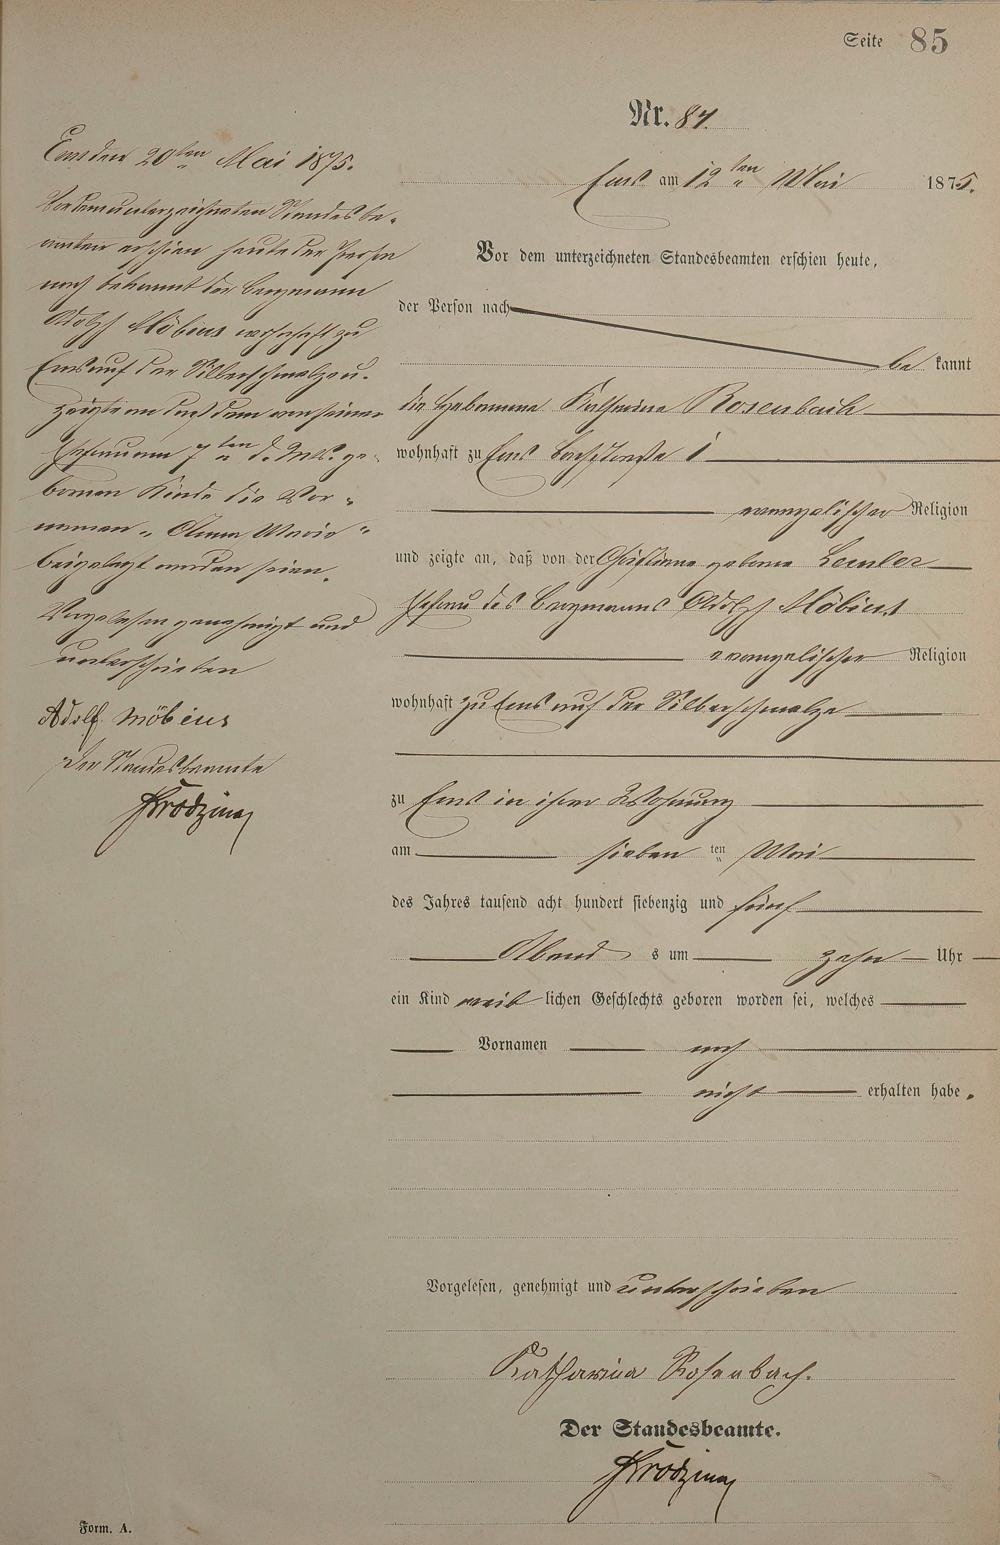 Seite 85
Nr. 84.
Ems am 12ten Mai 1875.
Vor dem unterzeichneten Standesbeamten erschien heute,
der Person nach
be kannt
die Hebamme Katharina Rosenbach
wohnhaft zu Ems Bachstraße 1
evangelischer Religion
und zeigte an, daß von der Christiane geborne
Ehefrau des Bergmanns Adolph Möbius
evangelischer Religion
wohnhaft zu Ems auf der Silberschmelze
zu Ems in ihrer Wohnung
am sieben ten Mai
des Jahres tausend acht hundert siebenzig und fünf
Abend s um zehn Uhr
ein Kind weib lichen Geschlechts geboren worden sei, welches
Vornamen noch
nicht erhalten habe.
Vorgelesen, genehmigt und unterschrieben
Katharina Rosenbach.
Der Standesbeamte.
Ems den 20ten Mai 1875.
Vor dem unterzeichneten Standesbe-
amten erschien heute der Person
nach bekannt der Bergmann
Adolph Möbius wohnhaft zu
Ems auf der Silberschmelze u.
zeigte an daß dem von seiner
Ehefrau am 7ten d. Mts. ge-
bornen Kinde die Vor-
namen „Anna Maria"
beigelegt worden seien.
Vorgelesen genehmigt und
unterschrieben
Adolf Möbius
Der Standesbeamte
Form. A.